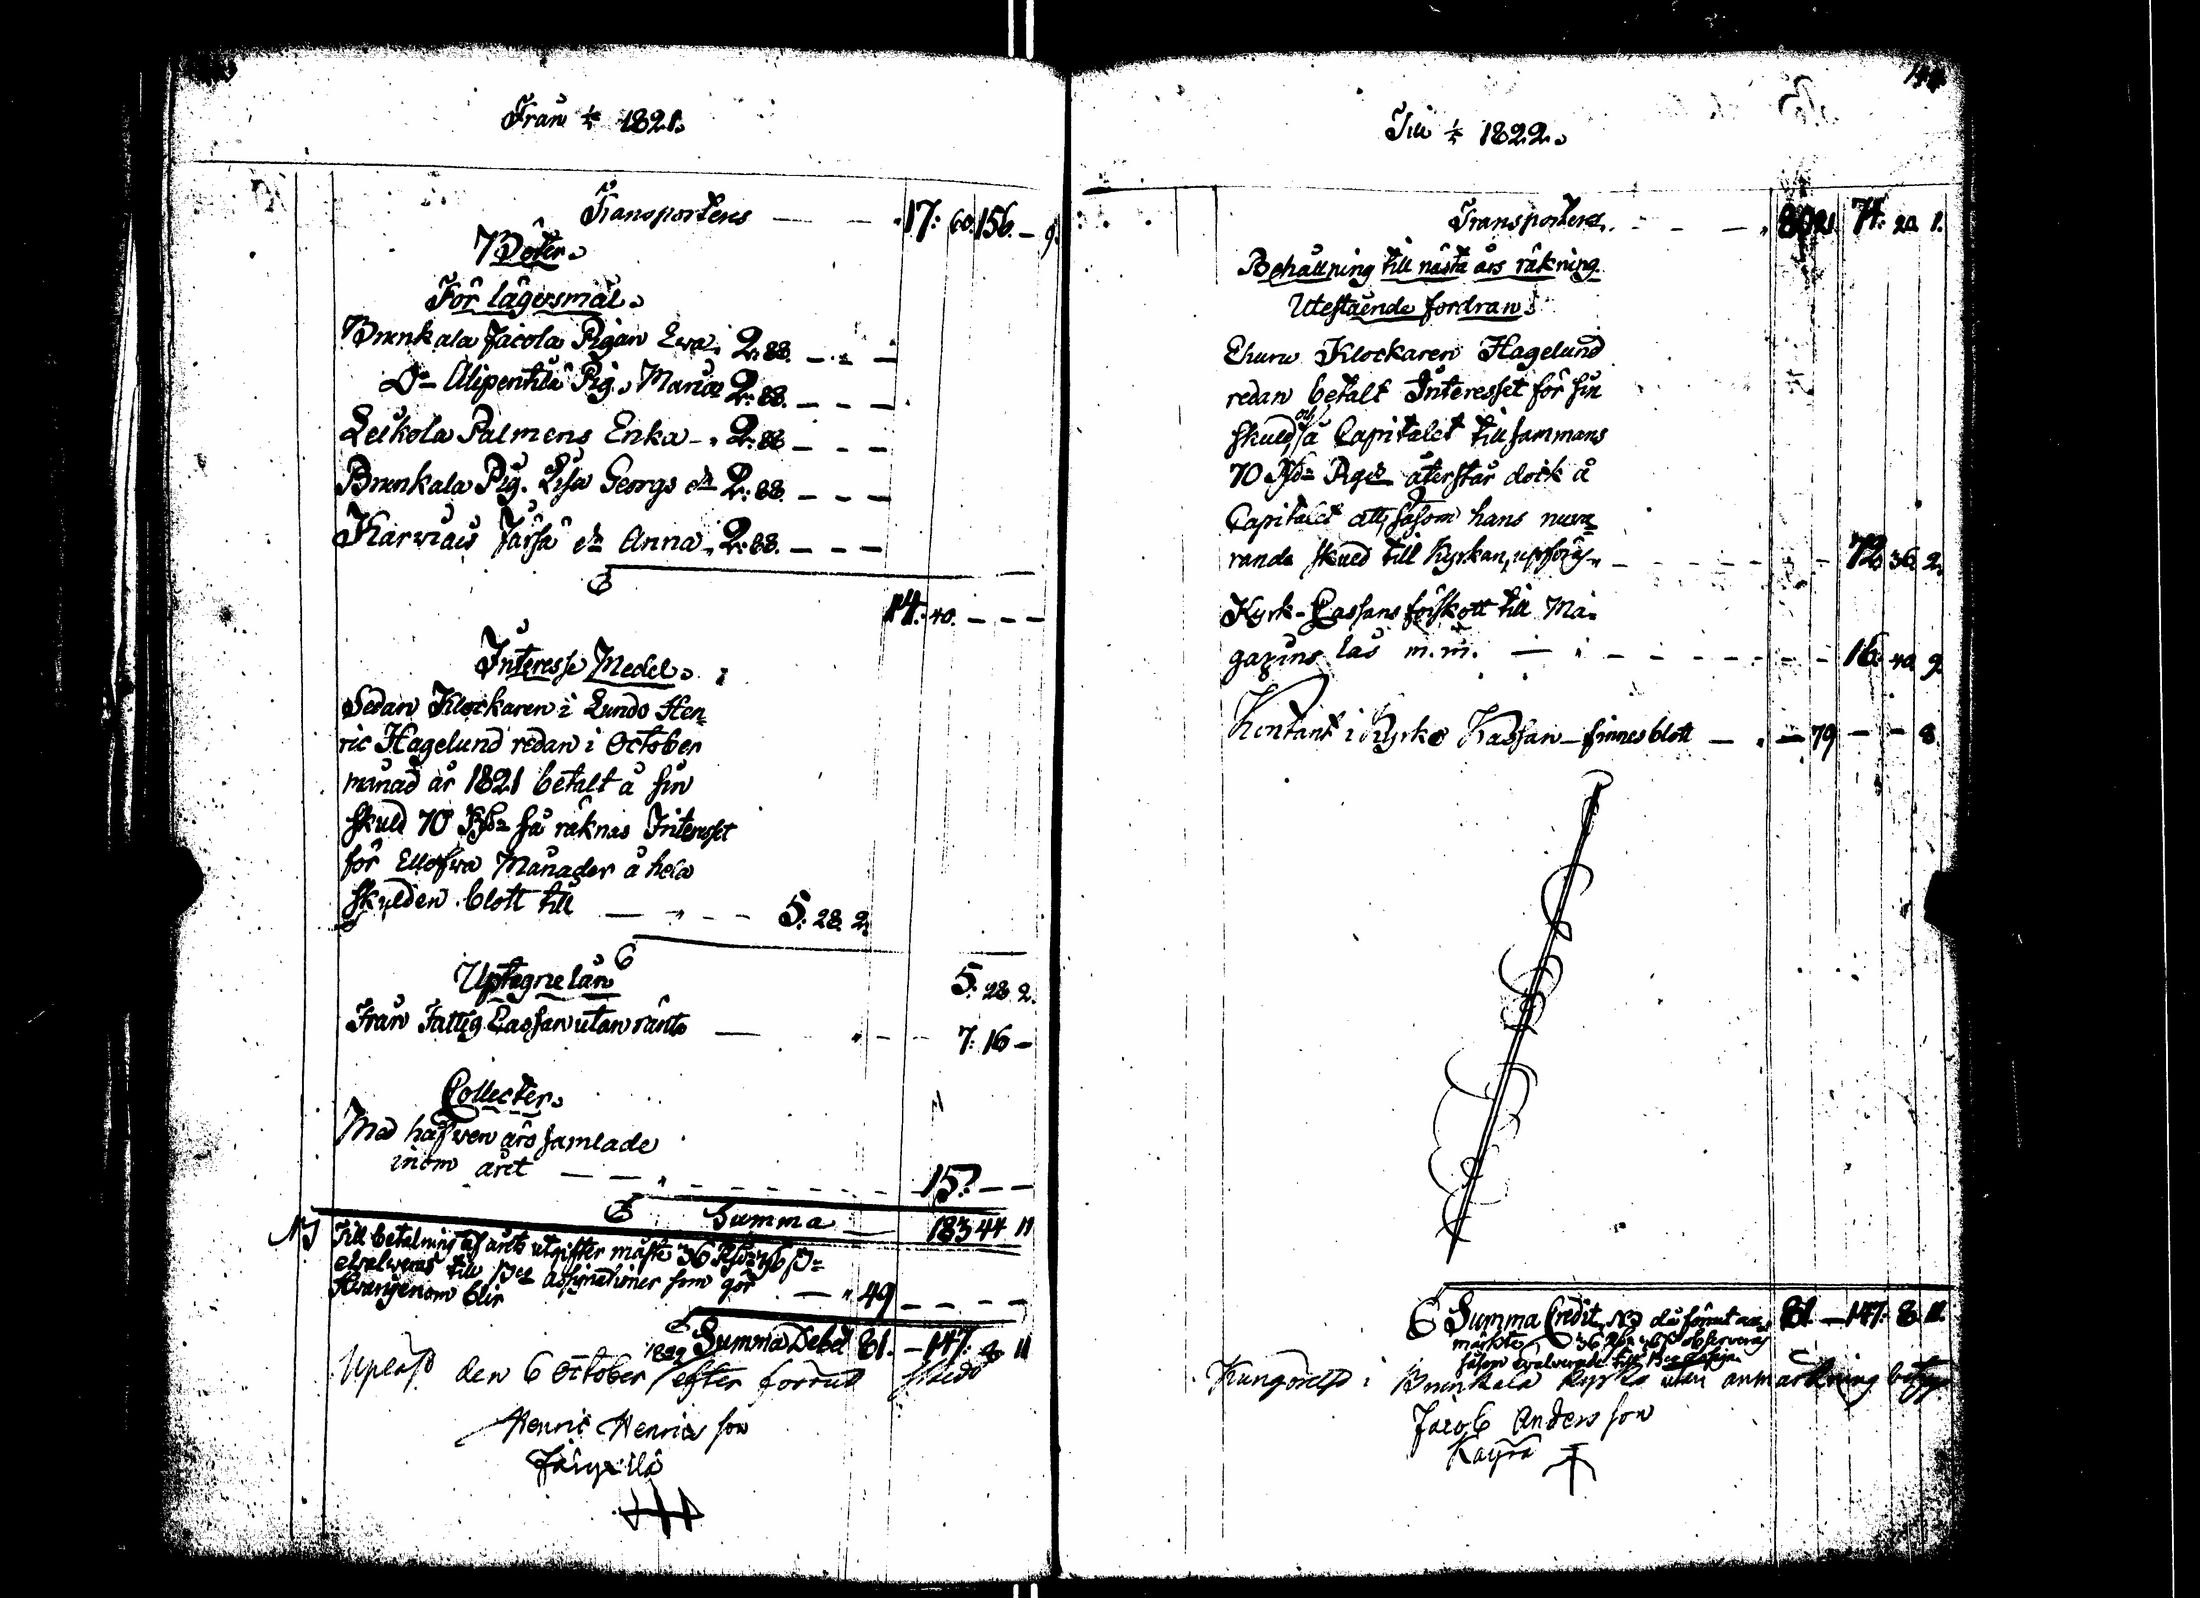 Från 1/5 1821.
Transporteres — — 17: 60. 156. — 9.
Böter.
För lägersmål.
Brunkala Jacola Pigan Eva. 2: 88. — — —
Do Alipentilä Pig. Maria 2: 88. — — —
Leikola Palmens Enka — 2: 88 — — —
Brunkala Pig. Lisa Georgs dr 2: 88. — — —
Karviais Jaska dr Anna. 2: 88. — — —
14: 40. — — —
Interesse Medel.
Sedan Klockaren i Lundo Hen-
ric Hagelund redan i October
månad år 1821 betalt å sin
skuld 70 Rd så räknas Interesset
för Ellofva Månader å hela
skulden blott till — — — 5: 28. 2.
5: 28. 2.
Uptagne lån
Från Fattig Cassan utan ränta — — — 7: 16 —
Collecter.
Med håfven äro samlade
inom året — — — 15: — —
Summa — 183 44 11
Till betalning af årets utgifter måste 36 Rd 36 s
evalveras till Bco Assignationer som gör
hvarigenom blir — 49 — — — —
Summa Debet 81. — 147: 8 11
Upläst den 6 October 1822 efter förrut skedd
Henric Henricsson
Jäyrilä
Till 1/5 1822.
Transporteres. — — 802. 74: 20. 1.
Behållning till nästa års räkning.
Utestående fordran.
Ehuru Klockaren Hagelund
redan betalt Interesset för sin
skuld, och å Capitalet tillsammans
70 Rd Rgs återstår dock å
Capitalet att, såsom hans nuva-
rande skuld till Kyrkan, upföras — — — 72. 36. 2.
Kyrk-Cassans förskott till Ma-
gazins lås m.m. — — — 16: 40. 9.
Kontant i Kyrko Kassan finnes blott — — 79 — — 8.
Summa Credit, 81. — 147: 8. 11.
Kungörelse i Brunkala Kyrka utan anmärkning
Jacob Andersson
Kayra